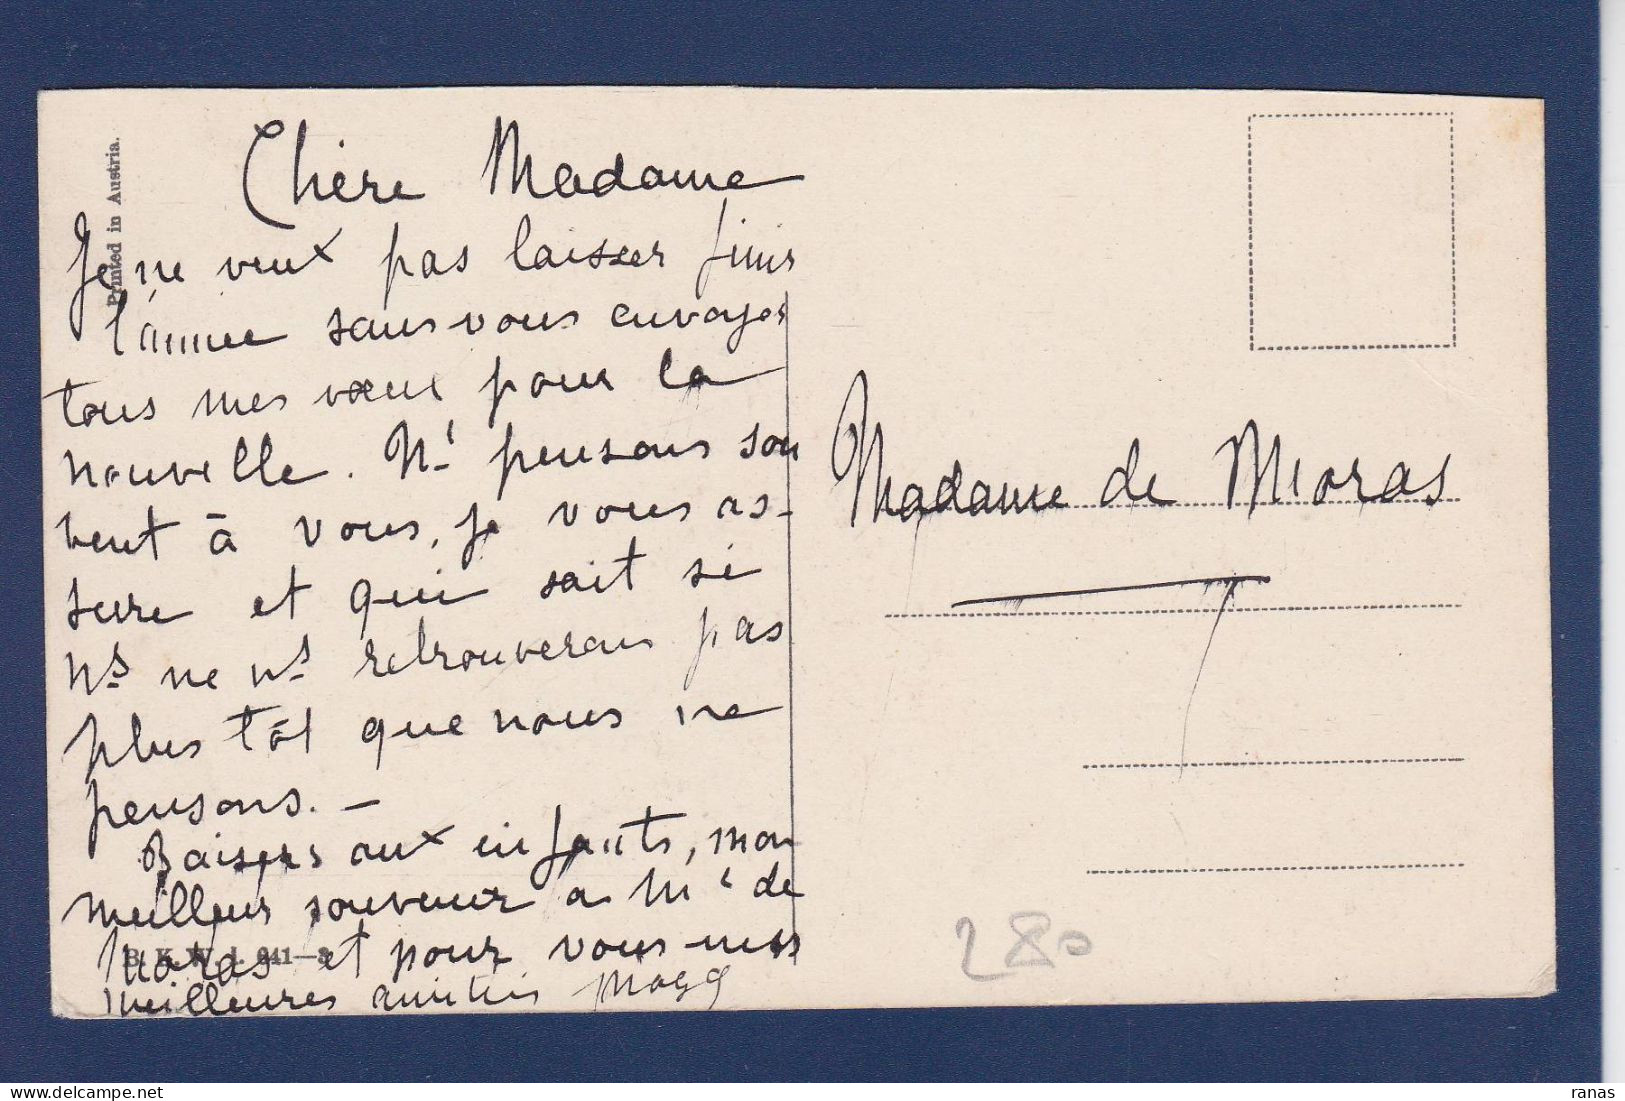 Printed in Austria.
Chère Madame
Je ne veux pas laisser finir
l'année sans vous envoyer
tous mes vœux pour la
nouvelle. Ns pensons sou
vent à vous, je vous as-
sure et qui sait si
Ns ne ns retrouverons pas
plus tôt que nous ne
pensons. —
Baisers aux enfants, mon
meilleur souvenir à Mr de
Moras et pour vous mes
meilleures amitiés
B. K. W. I. 941—3
Madame de Moras
280
ranas